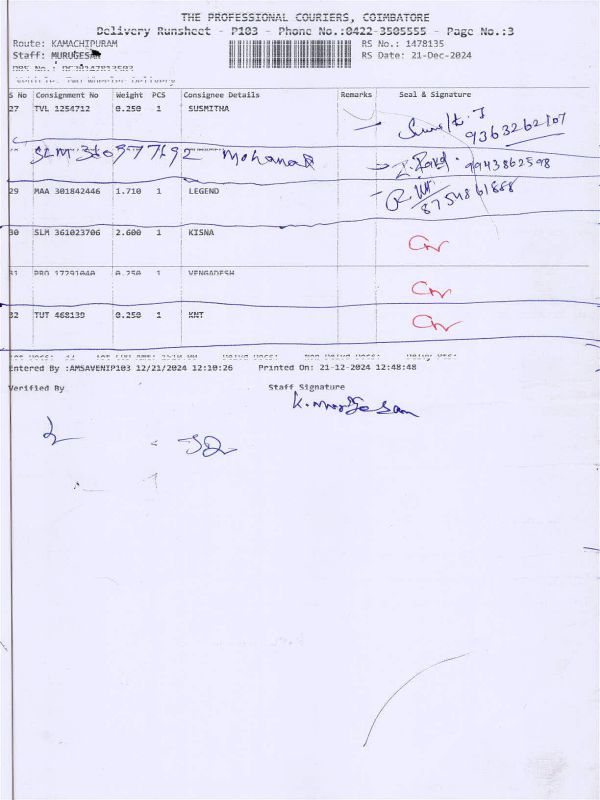 THE PROFESSIONAL COURIERS, COIMBATORE
Delivery Runsheet - P103 - Phone No.:0422-3505555 - Page No.:3
Route: KAMACHIPURAM RS No.: 1478135
Staff: MURUGESAN RS Date: 21-Dec-2024
S No Consignment No Weight PCS Consignee Details Remarks Seal & Signature
27 TVL 1254712 0.250 1 SUSMITHA
9363262107
Mohana 9943862598
29 MAA 301842446 1.710 1 LEGEND
8754861868
30 SLM 361023706 2.600 1 KISNA
31 PRO 17291040 0.250 1 VENGADESH
32 TUT 468139 0.250 1 KNT
Entered By :AMSAVENIP103 12/21/2024 12:10:26 Printed On: 21-12-2024 12:48:48
Verified By Staff Signature
K. Murugesan